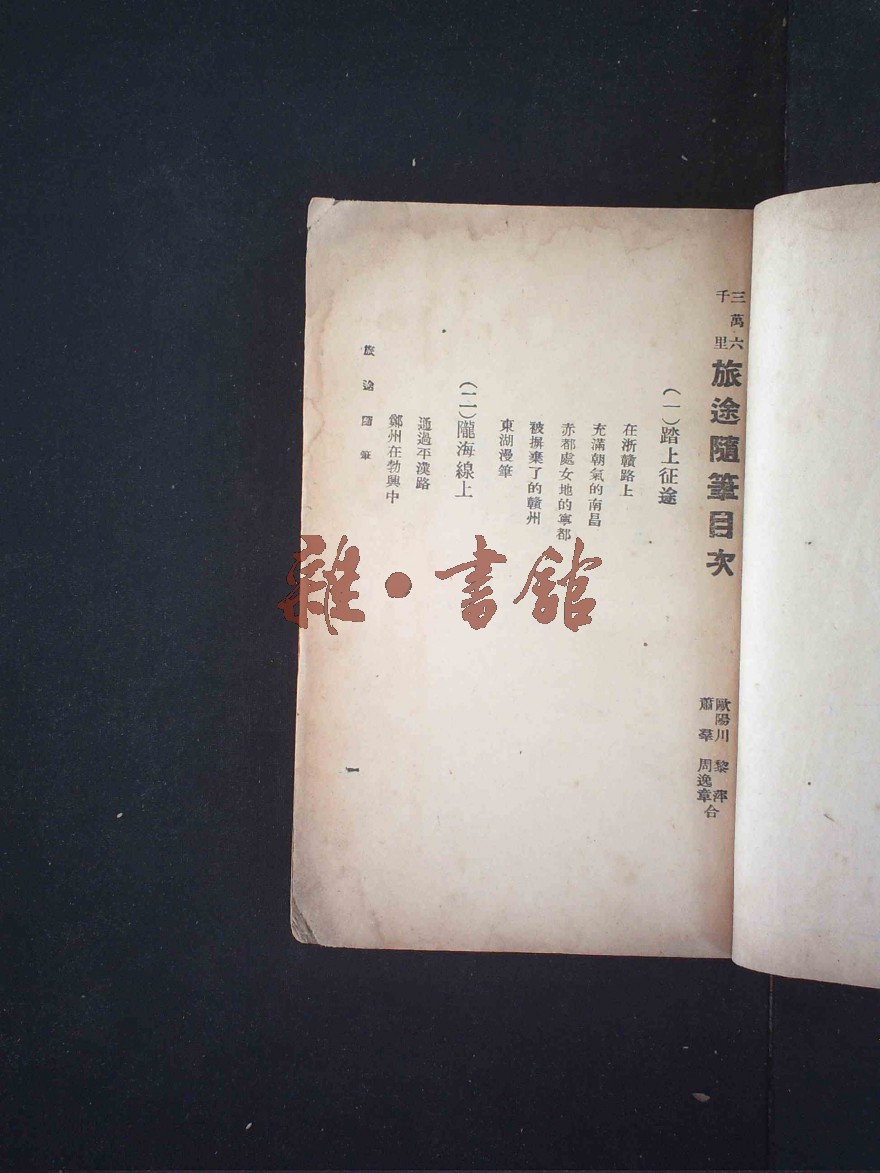 三萬六千里
旅途隨筆目次
歐陽川 黎澤
蕭羣 周逸章 合
(一)踏上征途
在浙贛路上
充滿朝氣的南昌
赤都處女地的寧都
被摒棄了的贛州
東湖漫筆
(二)隴海線上
通過平漢路
鄭州在勃興中
旅途隨筆
一
雜·書館